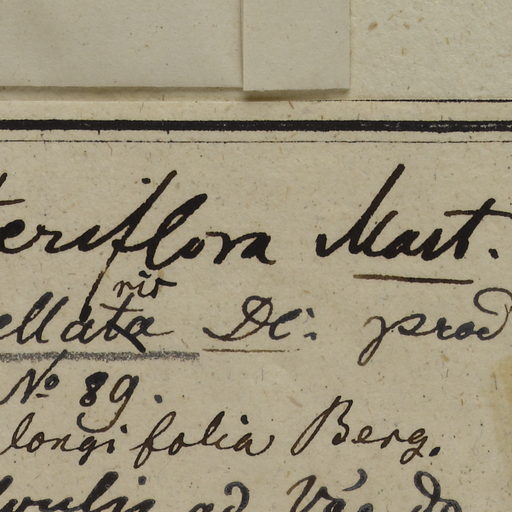 teriflora Mart.
ris
ellata DC: prod
No 89.
longifolia Berg.
ad